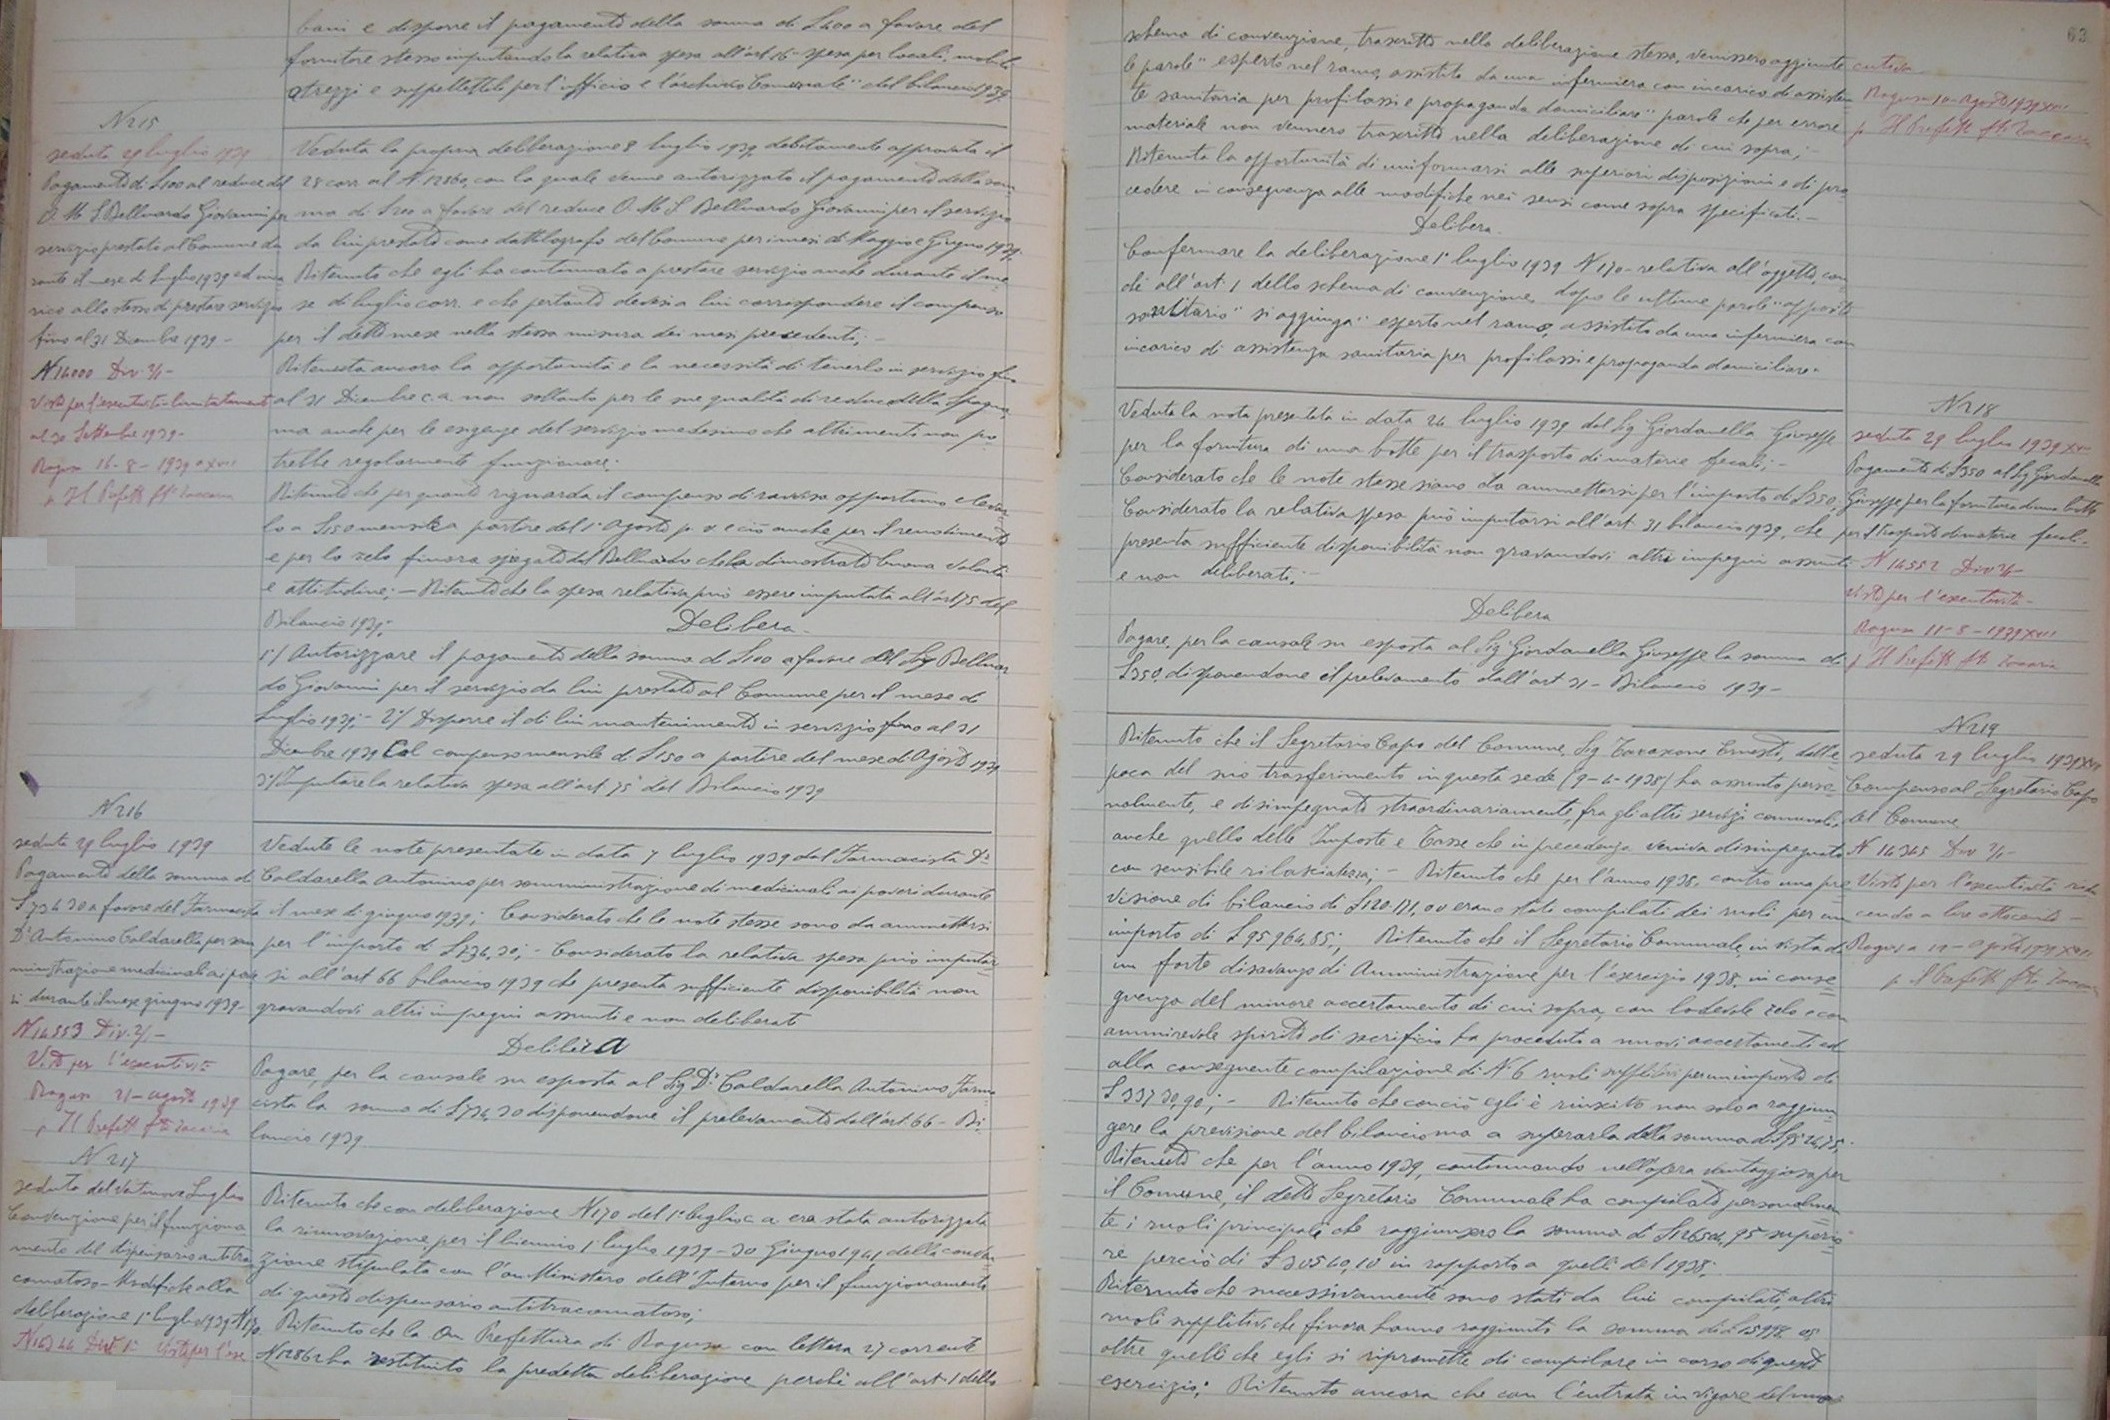 bani e disporre il pagamento della somma di £400 a favore del
fornitore stesso imputando la relativa spesa all'art. 16 - spesa per locali, mobili
attrezzi e suppellettili per l'ufficio e l'archivio Comunale" del bilancio 1939
N 215
seduta 29 luglio 1939
Pagamento di £100 al reduce del
O.M.S Belluardo Giovanni per
servizio prestato al Comune du
rante il mese di Luglio 1939 ed inca
rico allo stesso di prestare servizio
fino al 31 Dicembre 1939 -
N 14000 Div 2/1 -
Visto per l'esecutività limitatamente
al 30 Settembre 1939 -
Ragusa 16 - 8 - 1939 XVII
p. Il Prefetto fto Zaccaria
Veduta la propria deliberazione 8 luglio 1939 debitamente approvata il
28 corr. al N 12860, con la quale venne autorizzato il pagamento della som
ma di £200 a favore del reduce O.M.S Belluardo Giovanni per il servizio
da lui prestato come dattilografo del Comune per i mesi di Maggio e Giugno 1939.
Ritenuto che egli ha continuato a prestare servizio anche durante il me
se di luglio corr. e che pertanto devesi a lui corrispondere il compenso
per il detto mese nella stessa misura dei mesi precedenti; -
Ritenuta ancora la opportunità e la necessità di tenerlo in servizio fino
al 31 Dicembre c.a. non soltanto per le sue qualità di reduce della Spagna,
ma anche per le esigenze del servizio medesimo che altrimenti non po
trebbe regolarmente funzionare;
Ritenuto che per quanto riguarda il compenso di ravvisa opportuno elevar
lo a £150 mensili a partire del 1° Agosto p.v. e ciò anche per il rendimento
e per lo zelo finora spiegato dal Belluardo che ha dimostrato buona volontà
e attitudine; - Ritenuto che la spesa relativa può essere imputata all'art 75 del
Bilancio 1939;
Delibera -
1°/ Autorizzare il pagamento della somma di £100 a favore del Sig Belluar
do Giovanni per il servizio da lui prestato al Comune per il mese di
Luglio 1939; - 2°/ Disporre il di lui mantenimento in servizio fino al 31
Dicembre 1939 Col compenso mensile di £150 a partire del mese di Agosto 1939
3°/ Imputare la relativa spesa all'art 75 del Bilancio 1939
N 216
seduta 29 luglio 1939
Pagamento della somma di
£734.30 a favore del Farmacista
Dr Antonino Caldarella per som
ministrazione medicinali ai pove
ri durante il mese giugno 1939 -
N 14553 Div. 2/1 -
Visto per l'esecutività
Ragusa 21 - agosto 1939
p. Il Prefetto fto Zaccaria
Vedute le note presentate in data 7 luglio 1939 dal Farmacista Dr
Caldarella Antonino per somministrazione di medicinali ai poveri durante
il mese di giugno 1939; Considerato che le note stesse sono da ammettersi
per l'importo di £734,30; - Considerato la relativa spesa può imputar
si all'art 66 bilancio 1939 che presenta sufficiente disponibilità non
gravandovi altri impegni assunti e non deliberati
Delibera
Pagare, per la causale su esposta al Sig Dr Caldarella Antonino, Farma
cista la somma di £734,30 disponendone il prelevamento dall'art. 66 - Bi
lancio 1939
N 217
seduta del Ventinove Luglio
Convenzione per il funziona
mento del dispensario antitra
comatoso - Modifiche alla
deliberazione 1° luglio 1939 N 170
Visto per l'ese
Ritenuto che con deliberazione N 170 del 1° luglio c.a. era stata autorizzata
la rinnovazione per il biennio 1° luglio 1939 - 30 Giugno 1941, della conven
zione stipulata con l'on Ministero dell'Interno per il funzionamento
di questo dispensario antitracomatoso;
Ritenuto che la On Prefettura di Ragusa con lettera 27 corrente
N 12862 ha restituito la predetta deliberazione perché all'art. 1 dello
63
schema di convenzione, trascritto nella deliberazione stessa, venissero aggiunte
le parole" esperto nel ramo, assistito da una infermiera con incarico di assisten
te sanitaria per profilassi e propaganda domiciliare" parole che per errore
materiale non vennero trascritte nella deliberazione di cui sopra; -
Ritenuta la opportunità di uniformarsi alle superiori disposizioni e di pro
cedere in conseguenza alle modifiche nei sensi come sopra specificati. -
Delibera -
Confermare la deliberazione 1° luglio 1939 N 170 - relativa all'oggetto, con
ché all'art. 1 dello schema di convenzione dopo le ultime parole "apposito
sanitario" si aggiunga "esperto nel ramo, assistito da una infermiera con
incarico di assistenza sanitaria per profilassi e propaganda domiciliare"
cutività
Ragusa 10 - Agosto 1939 XVII
p. Il Prefetto fto Zaccaria
Veduta la nota presentata in data 24 luglio 1939 dal Sig Giordanella Giuseppe
per la fornitura di una botte per il trasporto di materie fecali; -
Considerato che le note stesse siano da ammettersi per l'importo di £350,
Considerato la relativa spesa può imputarsi all'art. 31 bilancio 1939, che
presenta sufficiente disponibilità non gravandovi altri impegni assunti
e non deliberati; -
Delibera
Pagare, per la causale su esposta al Sig Giordanella Giuseppe la somma di
£350, disponendone il prelevamento dall'art 31 - Bilancio 1939 -
N 218
seduta 29 luglio 1939 XVII
Pagamento di £350 al Sig Giordanella
Giuseppe per la fornitura di una botte
per il trasporto di materie fecali -
N 14552 Div 2/1 -
Visto per l'esecutività -
Ragusa 11 - 8 - 1939 XVII
p. Il Prefetto fto Zaccaria
Ritenuto che il Segretario Capo del Comune, Sig Tavasone Ernesto, dall'e
poca del suo trasferimento in questa sede (9 - 4 - 1938) ha assunto perso
nalmente, e disimpegnato straordinariamente, fra gli altri servizi comunali,
anche quello delle Imposte e Tasse che in precedenza veniva disimpegnato
con sensibile rilasciatezza; - Ritenuto che per l'anno 1938, contro una pre
visione di bilancio di £120.171,00 erano stati compilati dei ruoli per un
importo di £95964,85; Ritenuto che il Segretario Comunale, in vista di
un forte disavanzo di Amministrazione per l'esercizio 1938, in conse
guenza del minore accertamento di cui sopra, con lodevole zelo e con
ammirevole spirito di sacrificio ha proceduto a nuovi accertamenti ed
alla conseguente compilazione di N° 6 ruoli suppletivi per un importo di
£33730,90; - Ritenuto che con ciò egli è riuscito non solo a raggiun
gere la previsione del bilancio ma a superarla della somma di £9524,75;
Ritenuto che per l'anno 1939, continuando nell'opera vantaggiosa per
il Comune, il detto Segretario Comunale ha compilato personalmen
te i ruoli principali che raggiunsero la somma di £126504,95 superio
re perciò di £30540,10 in rapporto a quelli del 1938;
Ritenuto che successivamente sono stati da lui compilati, altri
ruoli suppletivi che finora hanno raggiunto la somma di £15998,05
oltre quelli che egli si ripromette di compilare in corso di questo
esercizio; Ritenuto ancora che con l'entrata in vigore del nuovo
N 219
seduta 29 luglio 1939 XVII
Compenso al Segretario Capo
del Comune
N 14345 Div 2/1 -
Visto per l'esecutività ridu
cendo a lire ottocento -
Ragusa 19 - agosto 1939 XVII
p. Il Prefetto fto Zaccaria